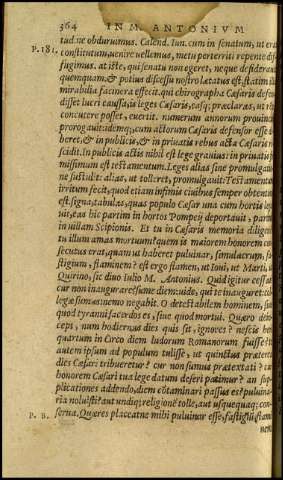 364 IN M. ANTONIVM
tudine obduruimus. Calend. Iun. cum in senatum, ut erat
P. 181. constitutum, uenire uellemus, metu perterriti repente dif-
fugimus. at iste, qui senatu non egeret, neque desiderauit
quemquam, & potius discessu nostro lætatus est, statim illa
mirabilia facinora effecit. qui chirographa Cæsaris defen-
disset lucri caussa, is leges Cæsaris, easq; præclaras, ut rēp.
concutere posset, euertit. numerum annorum prouinciis
prorogauit: idemq; cum actorum Cæsaris defensor esse de-
beret, & in publicis, & in priuatis rebus acta Cæsaris re-
scidit. In publicis actis nihil est lege grauius: in priuatis fir-
missimum est testamentum. Leges alias sine promulgatio-
ne sustulit: alias, ut tolleret, promulgauit. Testamentum
irritum fecit, quod etiam infimis ciuibus semper obtentum
est. signa, tabulas, quas populo Cæsar una cum hortis lega-
uit, eas hic partim in hortos Pompeij deportauit, partim
in uillam Scipionis. Et tu in Cæsaris memoria diligens?
tu illum amas mortuum? quem is maiorem honorem con-
secutus erat, quam ut haberet puluinar, simulacrum, fa-
stigium, flaminem? est ergo flamen, ut Ioui, ut Marti, ut
Quirino, sic diuo Iulio M. Antonius. Quid igitur cessas?
cur non inauguraris? sume diem: uide, qui te inauguret: col-
legæ sumus: nemo negabit. O detestabilem hominem, siue
quod tyranni sacerdos es, siue quod mortui. Quæro dein-
ceps, num hodiernus dies quis sit, ignores? nescis heri
quartum in Circo diem ludorum Romanorum fuisse? te
autem ipsum ad populum tulisse, ut quintus præterea
dies Cæsari tribueretur? cur non sumus prætextati? cur
honorem Cæsari tua lege datum deseri patimur? an sup-
plicationes addendo, diem cōtaminari passus es? puluina-
ria noluisti? aut undiq; religionē tolle, aut usquequaq; con-
P. B. serua. Quæres placeatne mihi puluinar esse, fastigiū, flam
nem